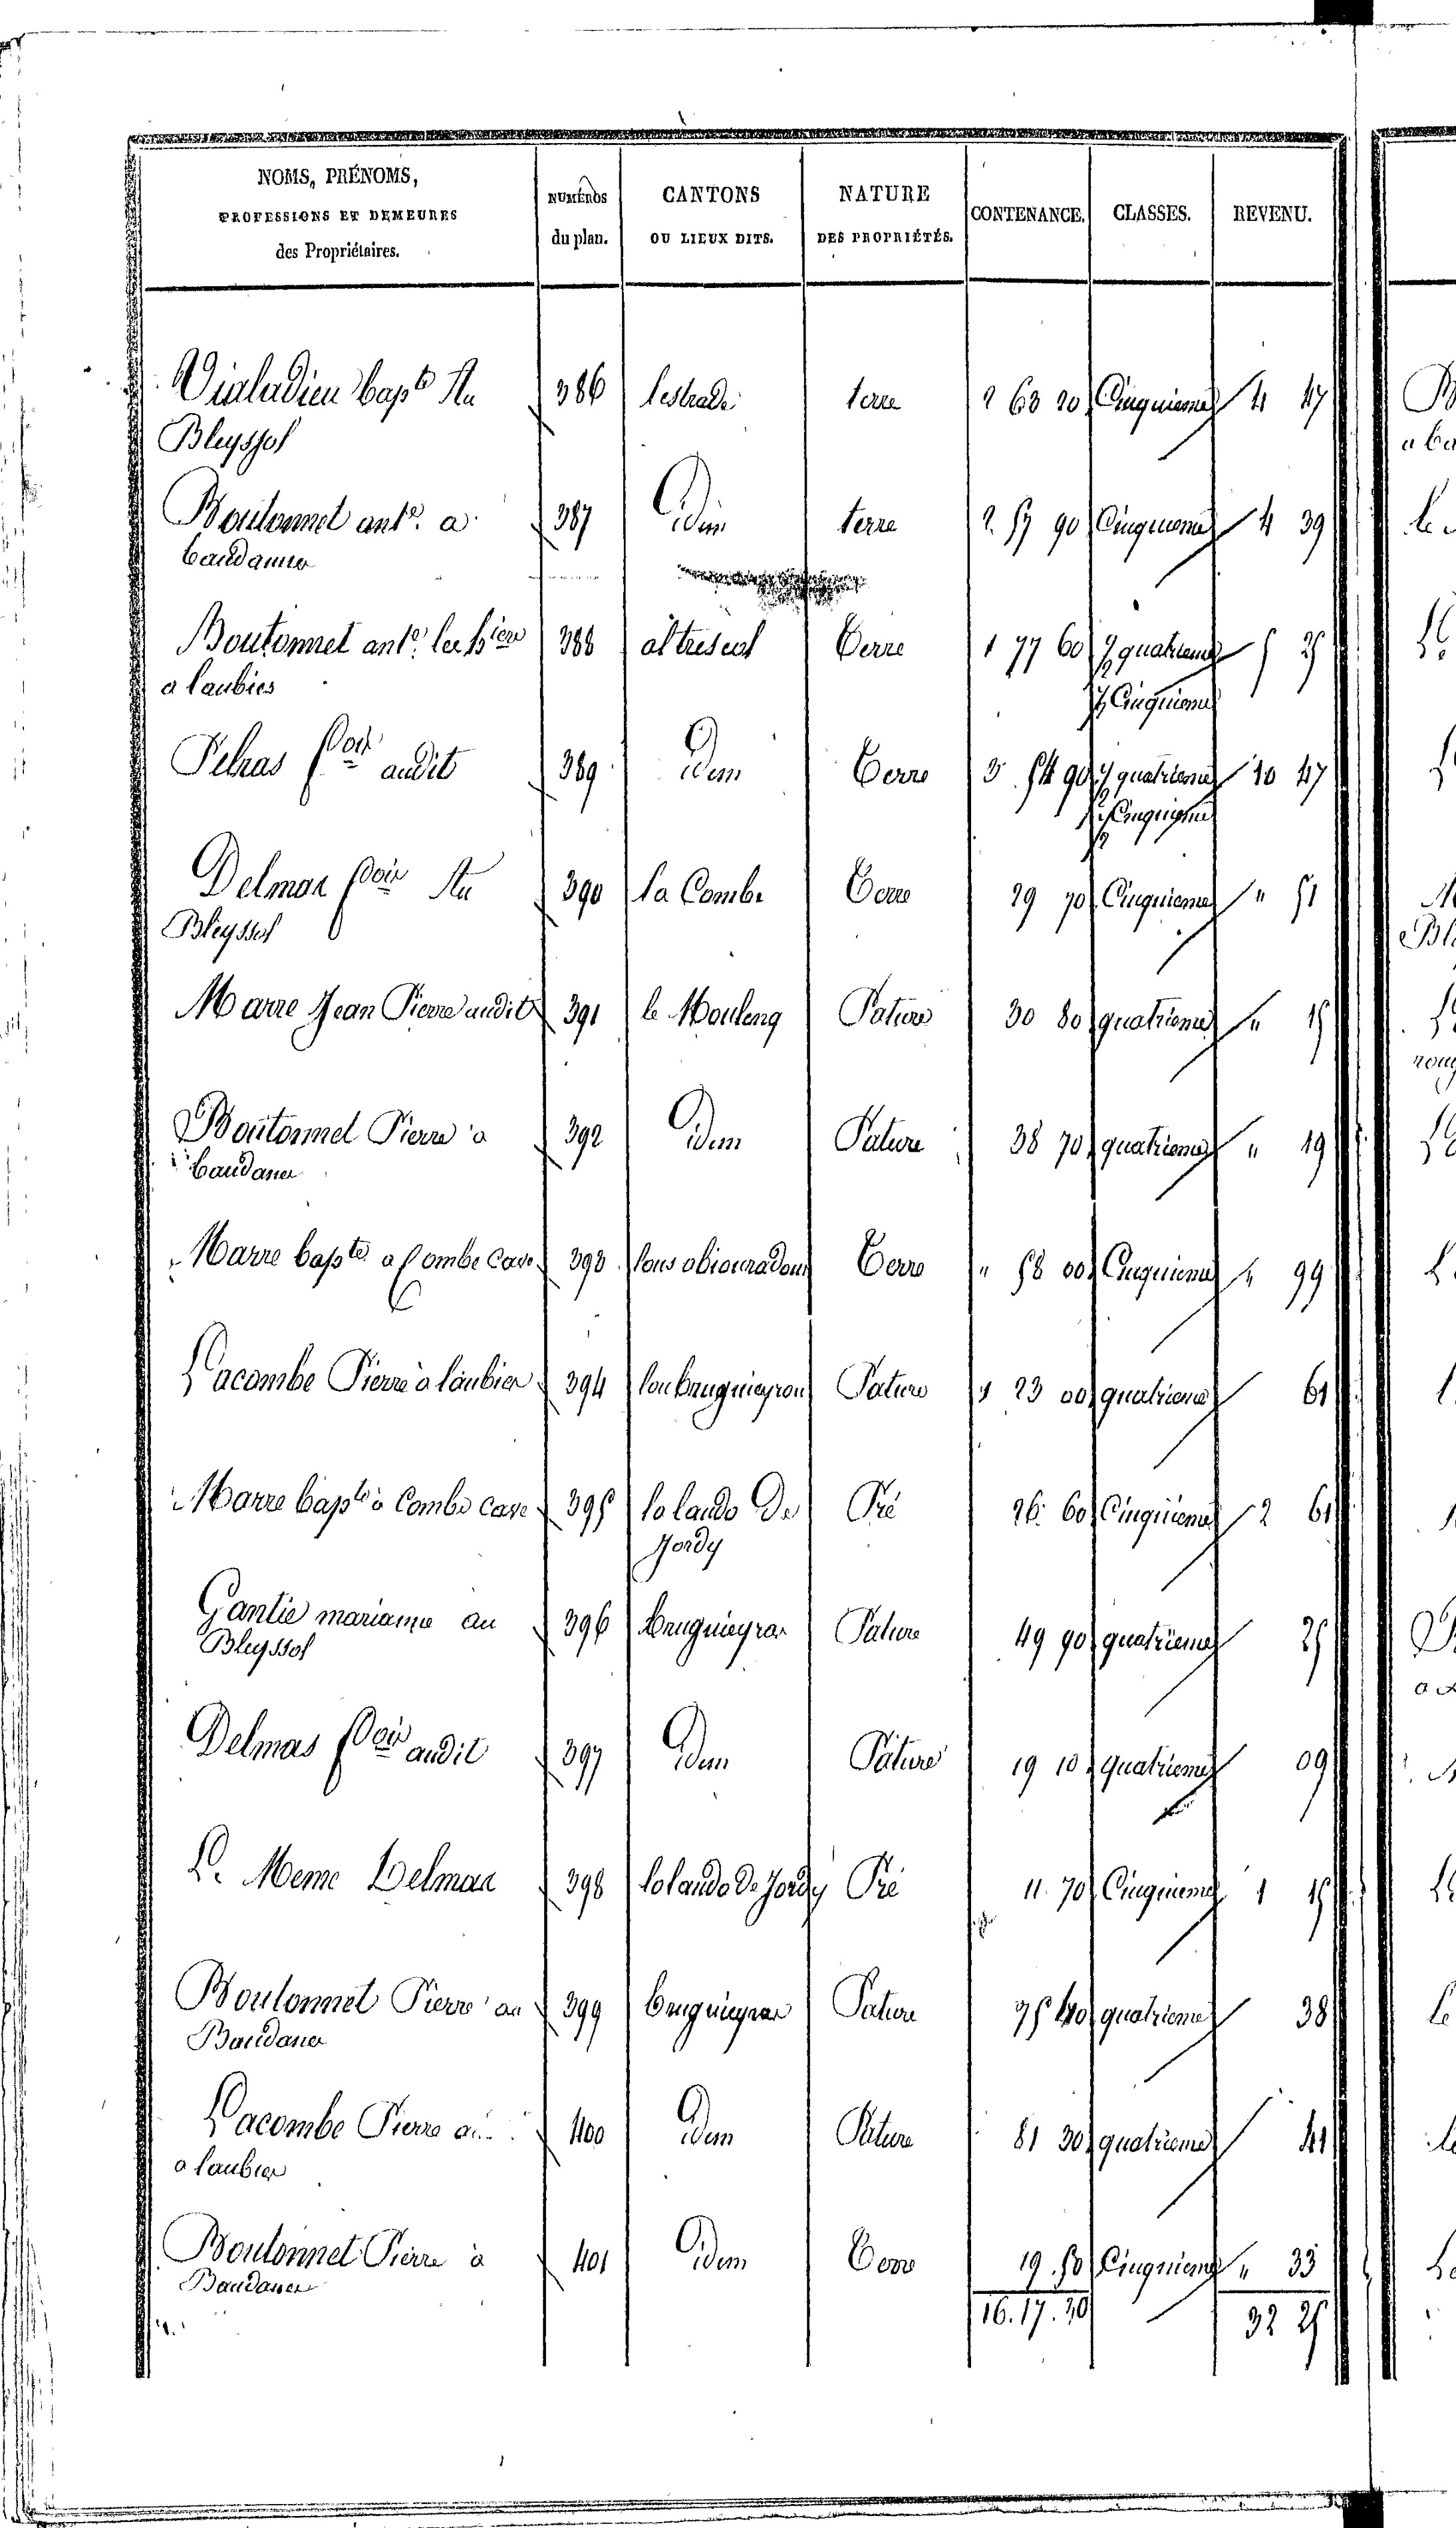 NOMS, PRÉNOMS, PROFESSIONS ET DEMEURES des Propriétaires. | NUMÉROS du plan. | CANTONS OU LIEUX DITS. | NATURE DES PROPRIÉTÉS. | CONTENANCE. | CLASSES. | REVENU.
Vialadieu bapte Au 386 lestrade terre 2 63 20 Cinquieme 4 47
Bleyssol
Boutonnet ante. a 387 Idem terre 2 57 90 Cinquieme 4 39
Baudanne
Boutonnet ante. 388 al tresent Terre 1 77 60 1/2 quatrieme 5 25
a laubies 1/2 Cinquieme
Pelras fois audit 389 Idem Terre 3 54 90 1/2 quatrieme 10 47
1/2 Cinquieme
Delmas fois Au 390 la Combe Terre 29 70 Cinquieme " 51
Bleyssol
Marre Jean Pierre audit 391 le Mouleng Pature 30 80 quatrieme " 15
Boutonnet Pierre a 392 Idem Pature 38 70 quatrieme " 19
baudane
Marre bapte a Combe Cave 393 Terre " 58 00 Cinquieme " 99
Lacombe Pierre à laubies 394 lou bruguieyrou Pature 1 23 00 quatrieme 61
Marre bapte à Combe Cave 395 lo lando De Pré 26 60 Cinquieme 2 61
Jordy
Gantie marianne au 396 bruguieyras Pature 49 90 quatrieme 25
Bleyssol
Delmas fois audit 397 Idem Pature 19 10 quatrieme 09
Le Meme Delmas 398 lo lando De Jordy Pré 11 70 Cinquieme 1 15
Boutonnet Pierre au 399 bruguieyras Pature 75 40 quatrieme 38
Baudane
Lacombe Pierre 400 Idem Pature 81 30 quatrieme 41
a laubies
Boutonnet Pierre à 401 Idem Terre 19.50 Cinquieme " 33
Baudane
16.17.30 32 25